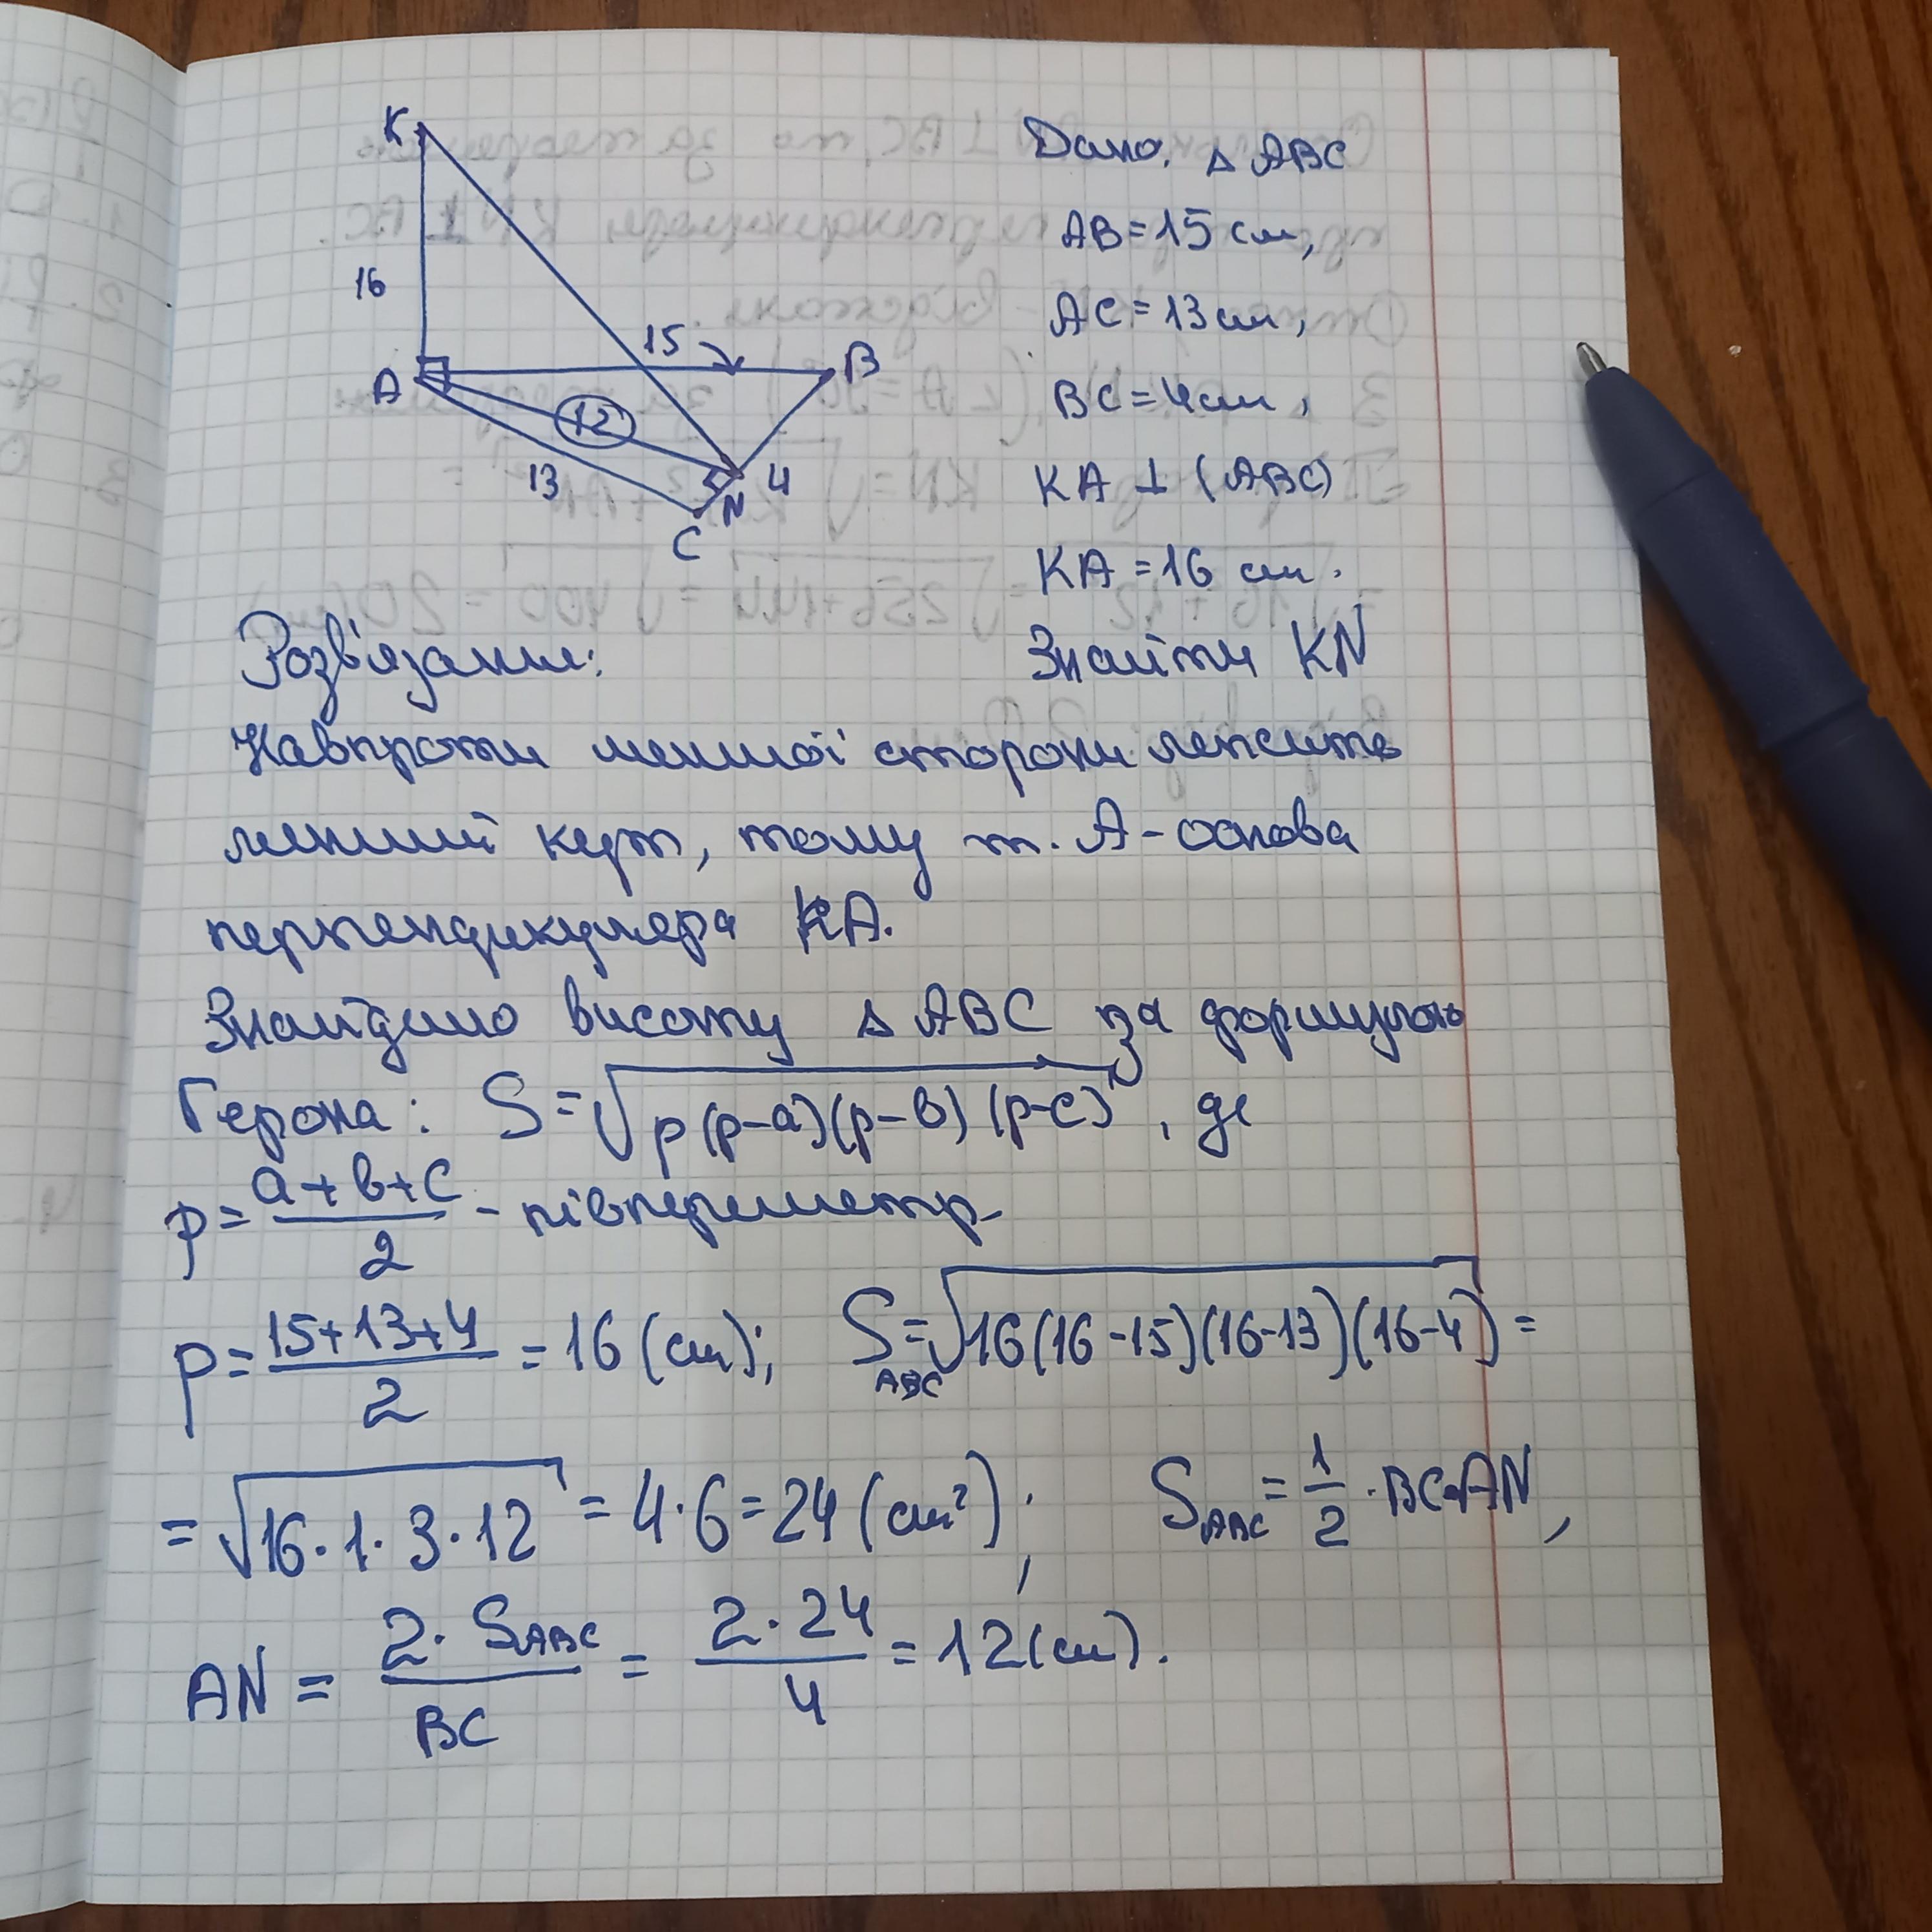 K
16
A
15
B
12
13
4
N
C
Дано: △ ABC
AB = 15 см,
AC = 13 см,
BC = 4 см,
KA ⊥ (ABC)
KA = 16 см.
Знайти KN
Розв'язання:
Навпроти меншої сторони лежить
менший кут, тому т. A - основа
перпендикуляра KA.
Знайдемо висоту △ ABC за формулою
Герона: S = √(p(p-a)(p-b)(p-c)), де
p = (a+b+c)/2 - півпериметр.
p = (15+13+4)/2 = 16 (см); S_ABC = √(16(16-15)(16-13)(16-4)) =
= √(16·1·3·12) = 4·6 = 24 (см²); S_ABC = 1/2 · BC·AN,
AN = (2·S_ABC)/BC = (2·24)/4 = 12 (см).